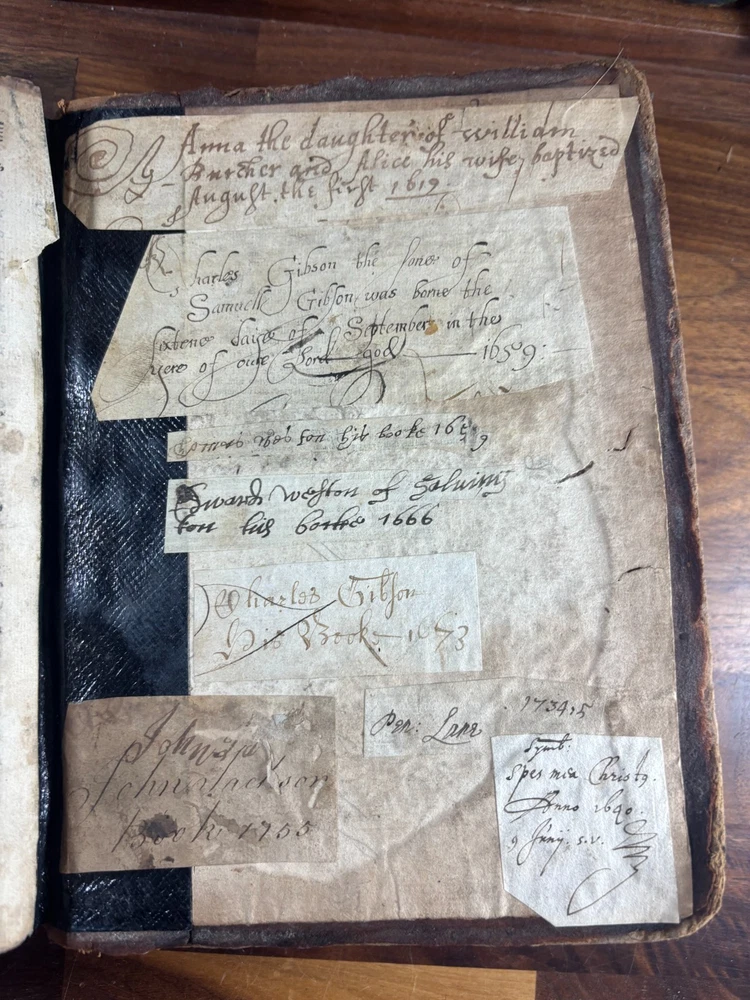 Anna the daughter of william
Burcher and Alice his wife, baptized
August. the first 1619.
Charles Gibson the sone of
Samuell Gibson, was borne the
sixtene daye of September in the
yere of oure Lord god — 1659:
his booke 16
Edward Weston of Salving
ton his booke 1666
Charles Gibson
His Booke 1673
Pen: Lane 1734,5
John
John Jackson
Book 1755
Symb:
Spes mea Christ9.
Anno 1640.
9 Junij. s.v.